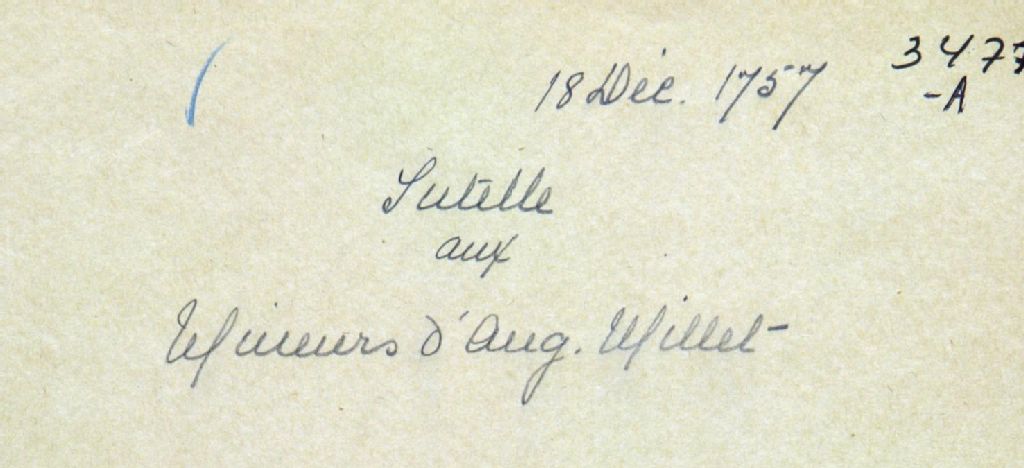 18 Déc. 1757
3477
-A
Tutelle
aux
Mineurs d'Aug. Millet